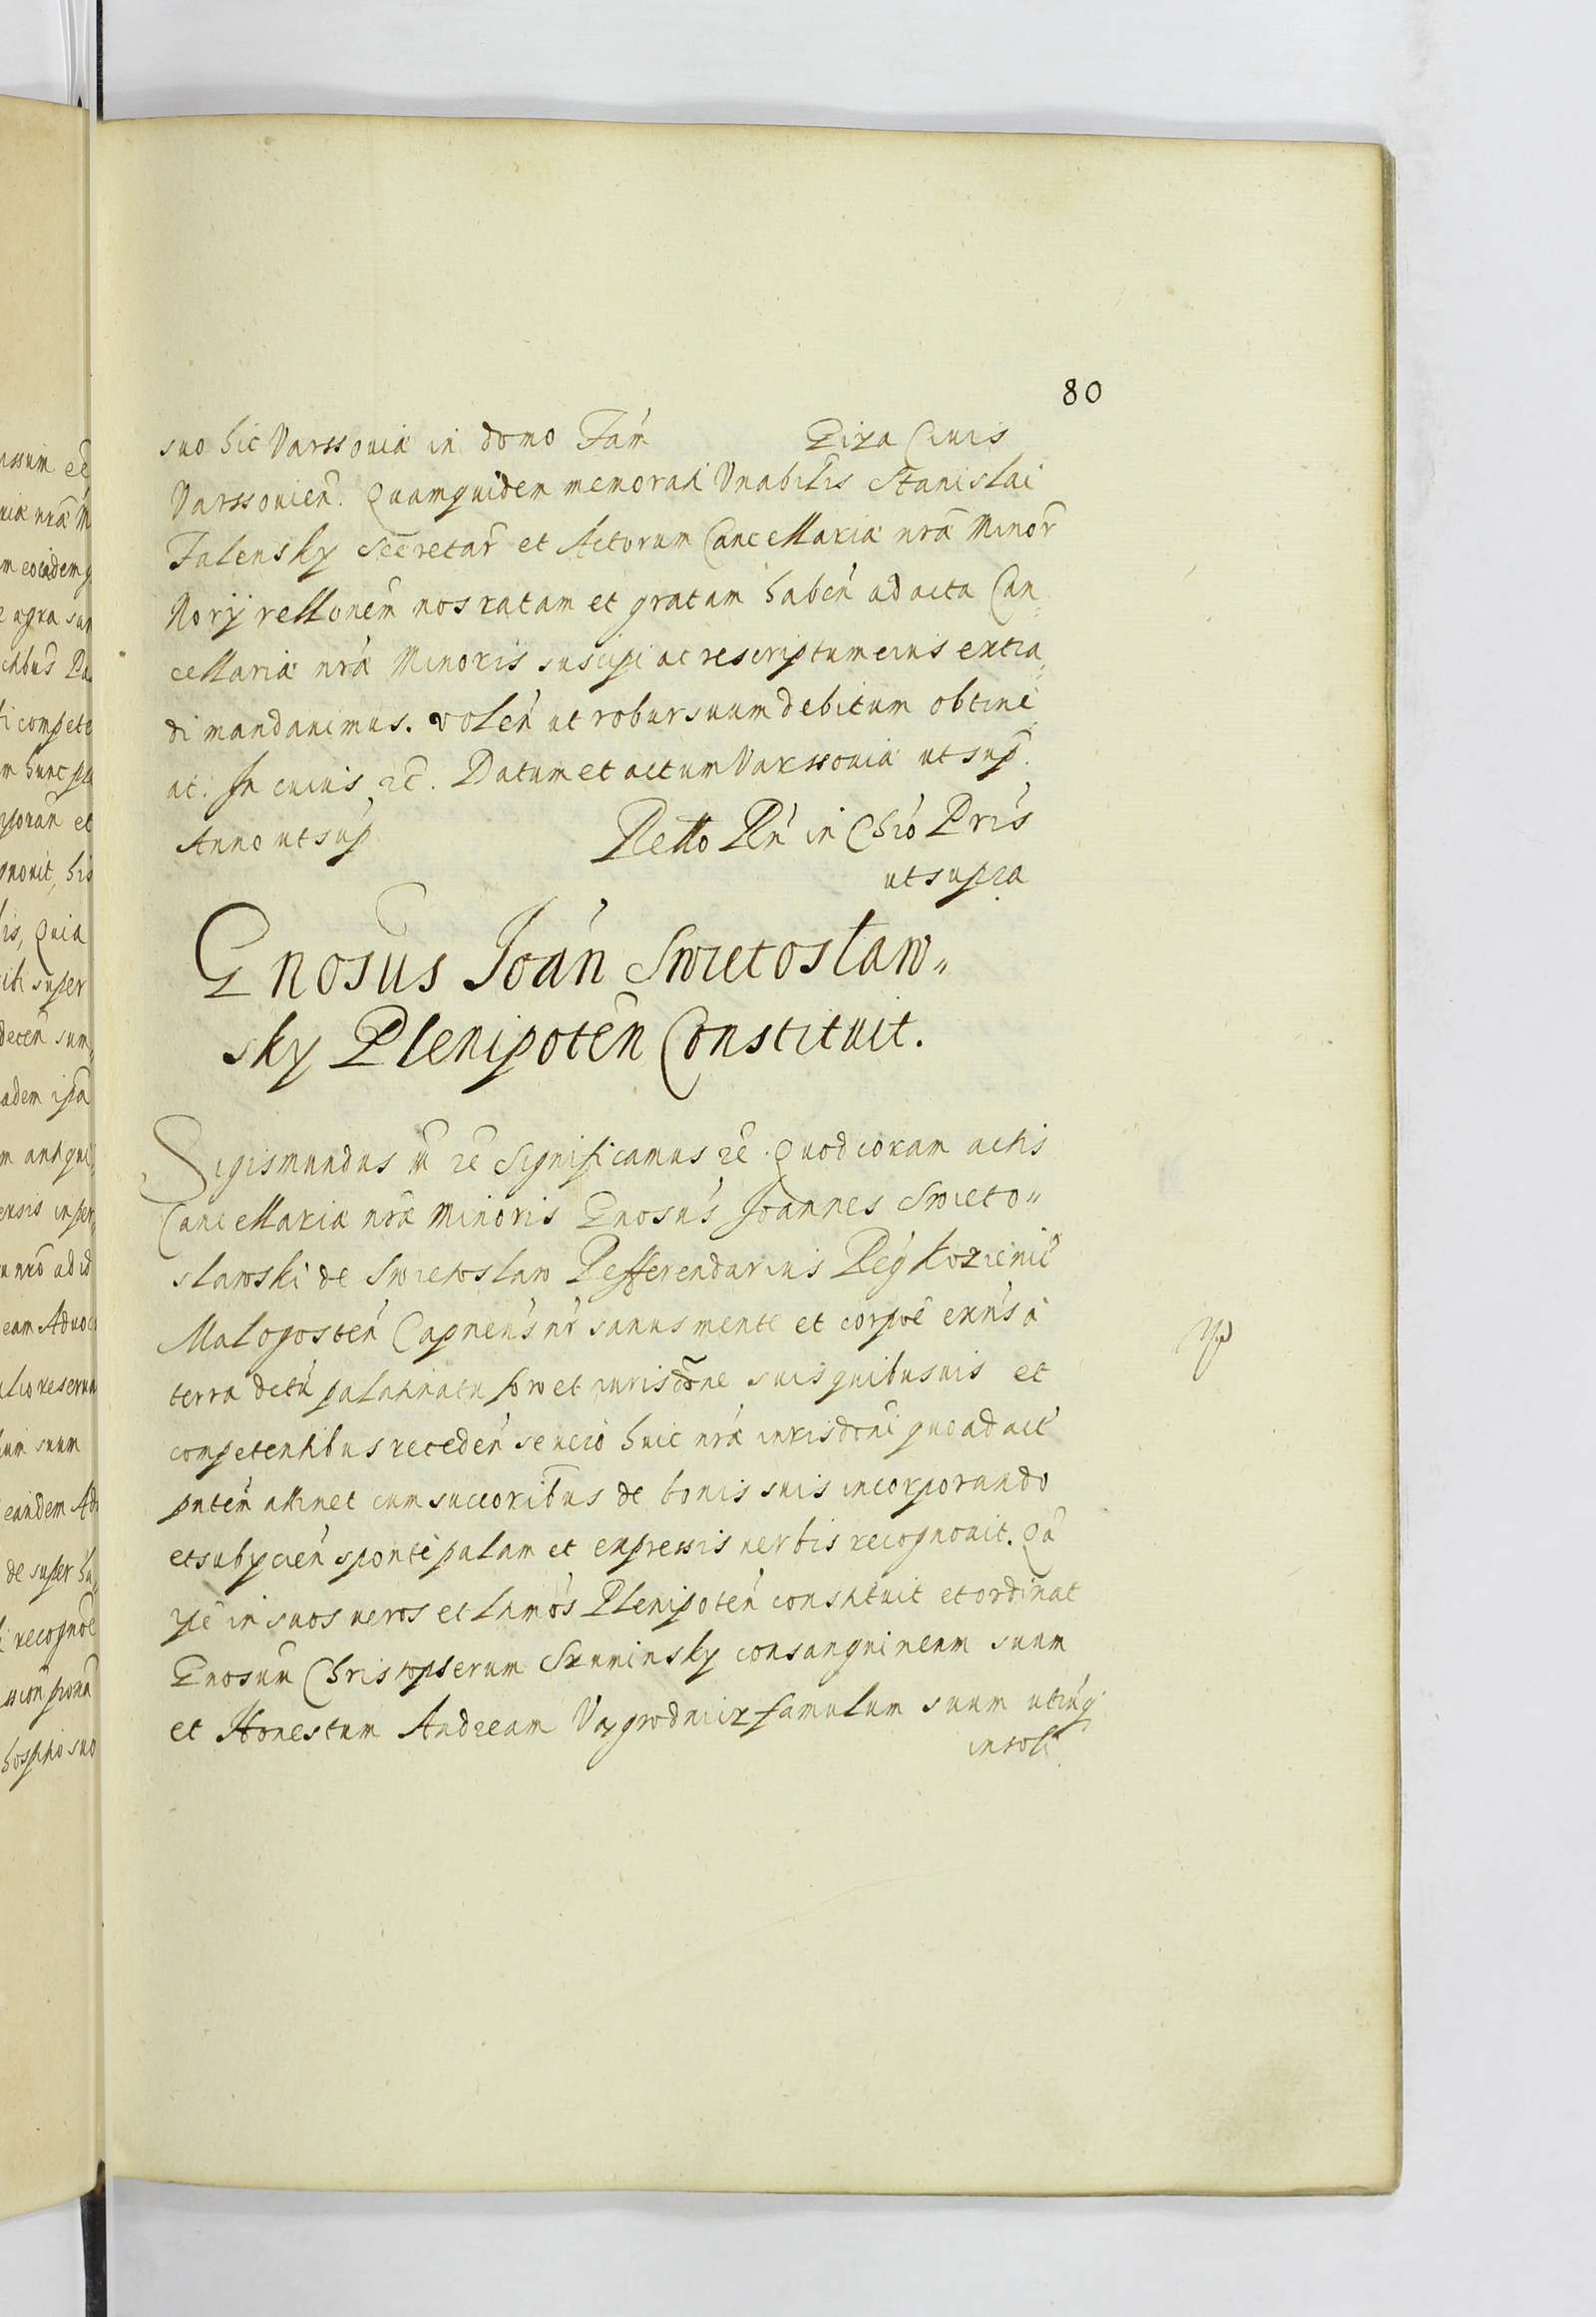 80
suo hic Varssouiæ in domo Fam̃ Giza Ciuis
Varssouien̄. Quamquidem memorati Vnabilis Stanislai
Falensky Secretar̄ et Actorum Cancellariæ nrã Minor̄
Norÿ rellonem̄ nos ratam et gratam haben̄ ad acta Can„
cellariæ nrã Minoris suscipi ac rescriptum eius extra„
di mandauimus. volen̄ ut robur suum debitum obtine
at. In cuius ꝛc̄. Datum et actum Varssouiæ ut sup̄.
Anno ut sup̄ Rello Rñ in Chrõ Prĩs
ut supra
Gnosus Joan̄ Swietoslaw„
sky Plenipoten̄ Constituit.
Sigismundus ꝛc̄ Significamus ꝛc̄. Quod coram actis
Cancellariæ nræ Minoris Gnosus Joannes Swieto„
slawski de Swietoslaw Refferendarius Reg̃ Kozienic̄
Malogosten̄ Capneus nr̄ sanus mente et corpore exns̃ a
terra dctũ palatinatu foro et iurisdõne suis quibusuis et
competentibus receden̄ seucio huic nræ iurisdõni quoad act̃
pntem̄ attinet cum succoribus de bonis suis incorporando
et subycien̄ sponte palam et expressis uerbis recognouit. Qã
ipe in suos ueros et lttmos Plenipoten̄ constituit et ordinat
Gnosum Christopherum Szuminsky consanguineum suum
et Honestum Andream famulum suum utrũq̃
insoli